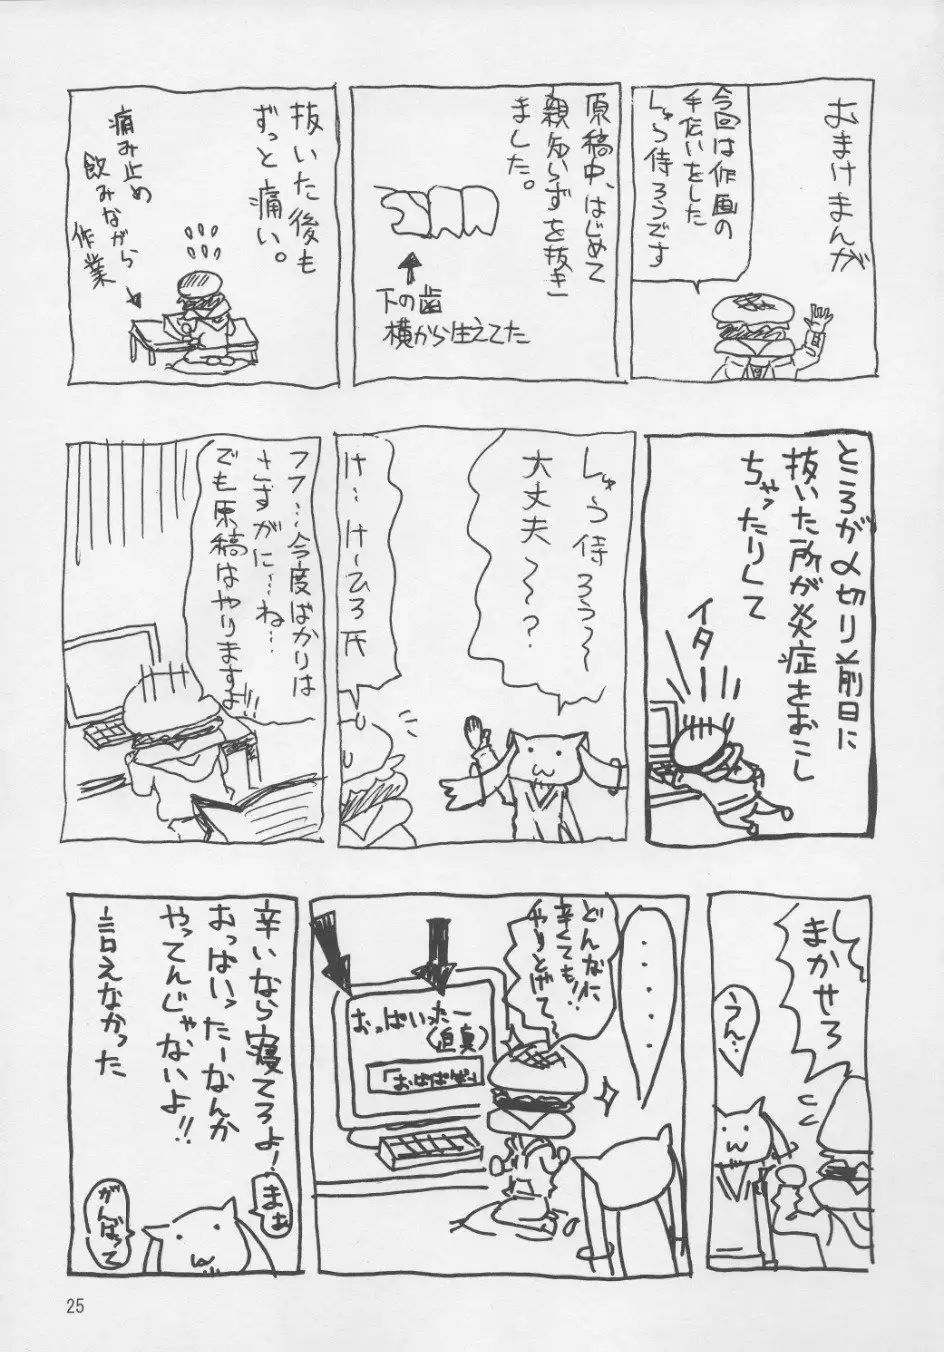 おまけまんが
今回は作画の
手伝いをした
しゅう侍ろうです
原稿中、はじめて
親知らずを抜き
ました。
下の歯
横から生えてた
抜いた後も
ずっと痛い。
痛み止め
飲みながら
作業
ところが〆切り前日に
抜いた所が炎症をおこし
ちゃったりして
イター
しゅう侍ろう〜
大丈夫〜〜？
け…けーひろ氏
フフ…今度ばかりは
さすがに…ね…
でも原稿はやりますよ!!
し…
まかせろ
うん…
・・・・・
どんなに
辛くても!!
やりとげて
おっぱいったー
(迫真)
「おぱぱぜ」
辛いなら寝てろよ！
おっぱいったーなんか
やってんじゃないよ!!
言えなかった
まぁ
がんばって
25